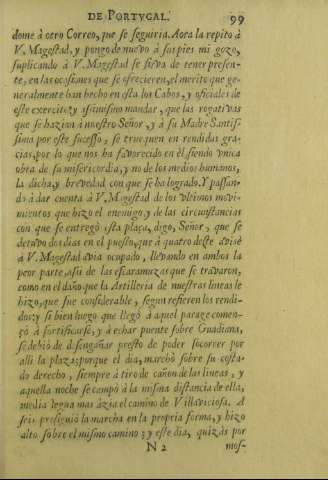 DE PORTVGAL. 99
dome à otro Correo, que se seguiria. Aora la repito à
V. Magestad, y pongo de nuevo à sus pies mi gozo,
suplicando à V. Magestad se sirva de tener presen-
te, en las ocasiones que se ofrecieren, el merito que ge-
neralmente han hecho en esta los Cabos, y oficiales de
este exercito; y assimismo mandar, que las rogativas
que se hazian à nuestro Señor, y à su Madre Santis-
sima por este sucesso, se truequen en rendidas gra-
cias, por lo que nos ha favorecido en èl, siendo vnica
obra de su misericordia, y no de los medios humanos,
la dicha, y brevedad con que se ha logrado. Y passan-
do à dar cuenta à V. Magestad de los vltimos movi-
mientos que hizo el enemigo, y de las circunstancias
con que se entregò esta plaça, digo, Señor, que se
detuvo dos dias en el puesto, que à quatro deste avisè
à V. Magestad avia ocupado, llevando en ambos la
peor parte, assi de las escaramuzas que se travaron,
como en el daño que la Artilleria de nuestras lineas le
hizo, que fue considerable, segun refieren los rendi-
dos; y si bien luego que llegò à aquel parage comen-
çò à fortificarse, y à echar puente sobre Guadiana,
se debiò de desengañar presto de poder socorrer por
alli la plaza; porque el dia, marchò sobre su costa-
do derecho, siempre à tiro de cañon de las lineas, y
aquella noche se campò à la misma distancia de ella,
media legua mas àzia el camino de Villaviciosa. A
seis prosiguiò la marcha en la propria forma, y hizo
alto sobre el mismo camino; y este dia, quizás por
N 2 mos-